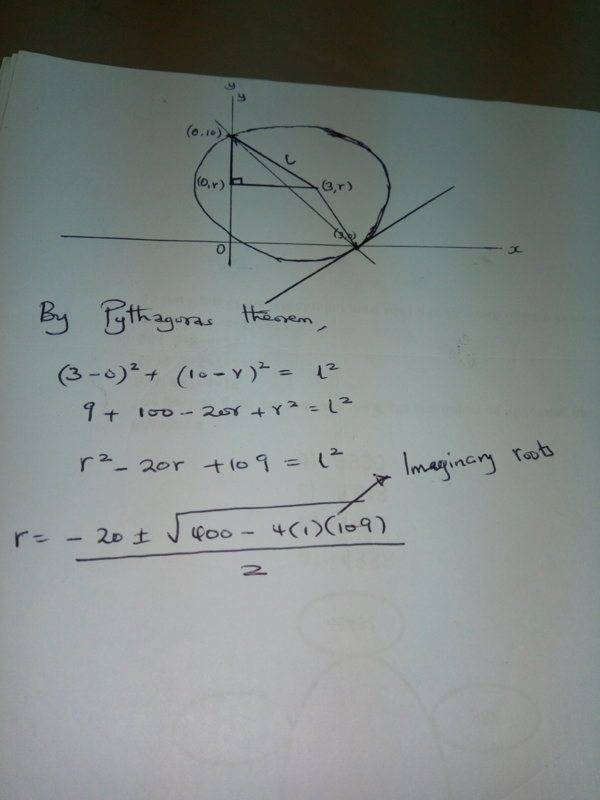 y
y
(0,10)
L
(0,r)
(3,r)
(3,0)
0
x
By Pythagoras theorem,
(3-0)² + (10-r)² = l²
9 + 100 - 20r + r² = l²
r² - 20r + 109 = l²
Imaginary roots
r = - 20 ± √400 - 4(1)(109)
2